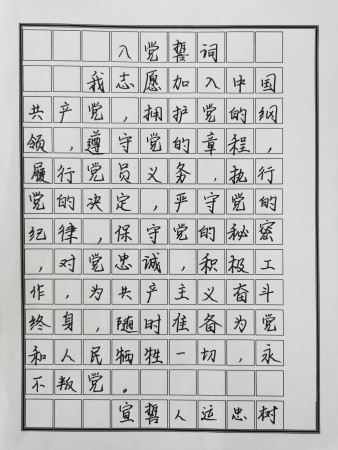 入党誓词
我志愿加入中国
共产党，拥护党的纲
领，遵守党的章程，
履行党员义务，执行
党的决定，严守党的
纪律，保守党的秘密
，对党忠诚，积极工
作，为共产主义奋斗
终身，随时准备为党
和人民牺牲一切，永
不叛党。
宣誓人运忠树